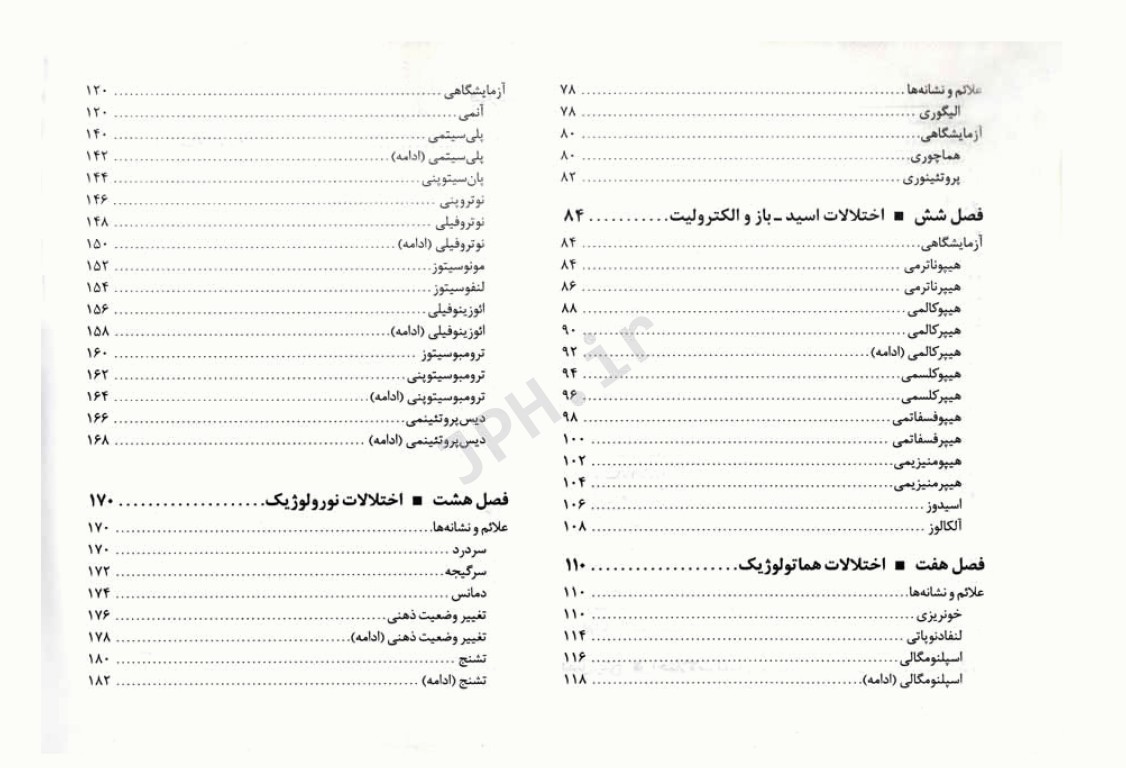 علائم و نشانه‌ها ..... ۷۸
الیگوری ..... ۷۸
آزمایشگاهی ..... ۸۰
هماچوری ..... ۸۰
پروتئینوری ..... ۸۲
فصل شش ■ اختلالات اسید ـ باز و الکترولیت ..... ۸۴
آزمایشگاهی ..... ۸۴
هیپوناترمی ..... ۸۴
هیپرناترمی ..... ۸۶
هیپوکالمی ..... ۸۸
هیپرکالمی ..... ۹۰
هیپرکالمی (ادامه) ..... ۹۲
هیپوکلسمی ..... ۹۴
هیپرکلسمی ..... ۹۶
هیپوفسفاتمی ..... ۹۸
هیپرفسفاتمی ..... ۱۰۰
هیپومنیزیمی ..... ۱۰۲
هیپرمنیزیمی ..... ۱۰۴
اسیدوز ..... ۱۰۶
آلکالوز ..... ۱۰۸
فصل هفت ■ اختلالات هماتولوژیک ..... ۱۱۰
علائم و نشانه‌ها ..... ۱۱۰
خونریزی ..... ۱۱۰
لنفادنوپاتی ..... ۱۱۴
اسپلنومگالی ..... ۱۱۶
اسپلنومگالی (ادامه) ..... ۱۱۸
آزمایشگاهی ..... ۱۲۰
آنمی ..... ۱۲۰
پلی‌سیتمی ..... ۱۴۰
پلی‌سیتمی (ادامه) ..... ۱۴۲
پان‌سیتوپنی ..... ۱۴۴
نوتروپنی ..... ۱۴۶
نوتروفیلی ..... ۱۴۸
نوتروفیلی (ادامه) ..... ۱۵۰
مونوسیتوز ..... ۱۵۲
لنفوسیتوز ..... ۱۵۴
ائوزینوفیلی ..... ۱۵۶
ائوزینوفیلی (ادامه) ..... ۱۵۸
ترومبوسیتوز ..... ۱۶۰
ترومبوسیتوپنی ..... ۱۶۲
ترومبوسیتوپنی (ادامه) ..... ۱۶۴
دیس‌پروتئینمی ..... ۱۶۶
دیس‌پروتئینمی (ادامه) ..... ۱۶۸
فصل هشت ■ اختلالات نورولوژیک ..... ۱۷۰
علائم و نشانه‌ها ..... ۱۷۰
سردرد ..... ۱۷۰
سرگیجه ..... ۱۷۲
دمانس ..... ۱۷۴
تغییر وضعیت ذهنی ..... ۱۷۶
تغییر وضعیت ذهنی (ادامه) ..... ۱۷۸
تشنج ..... ۱۸۰
تشنج (ادامه) ..... ۱۸۲
JPH.ir